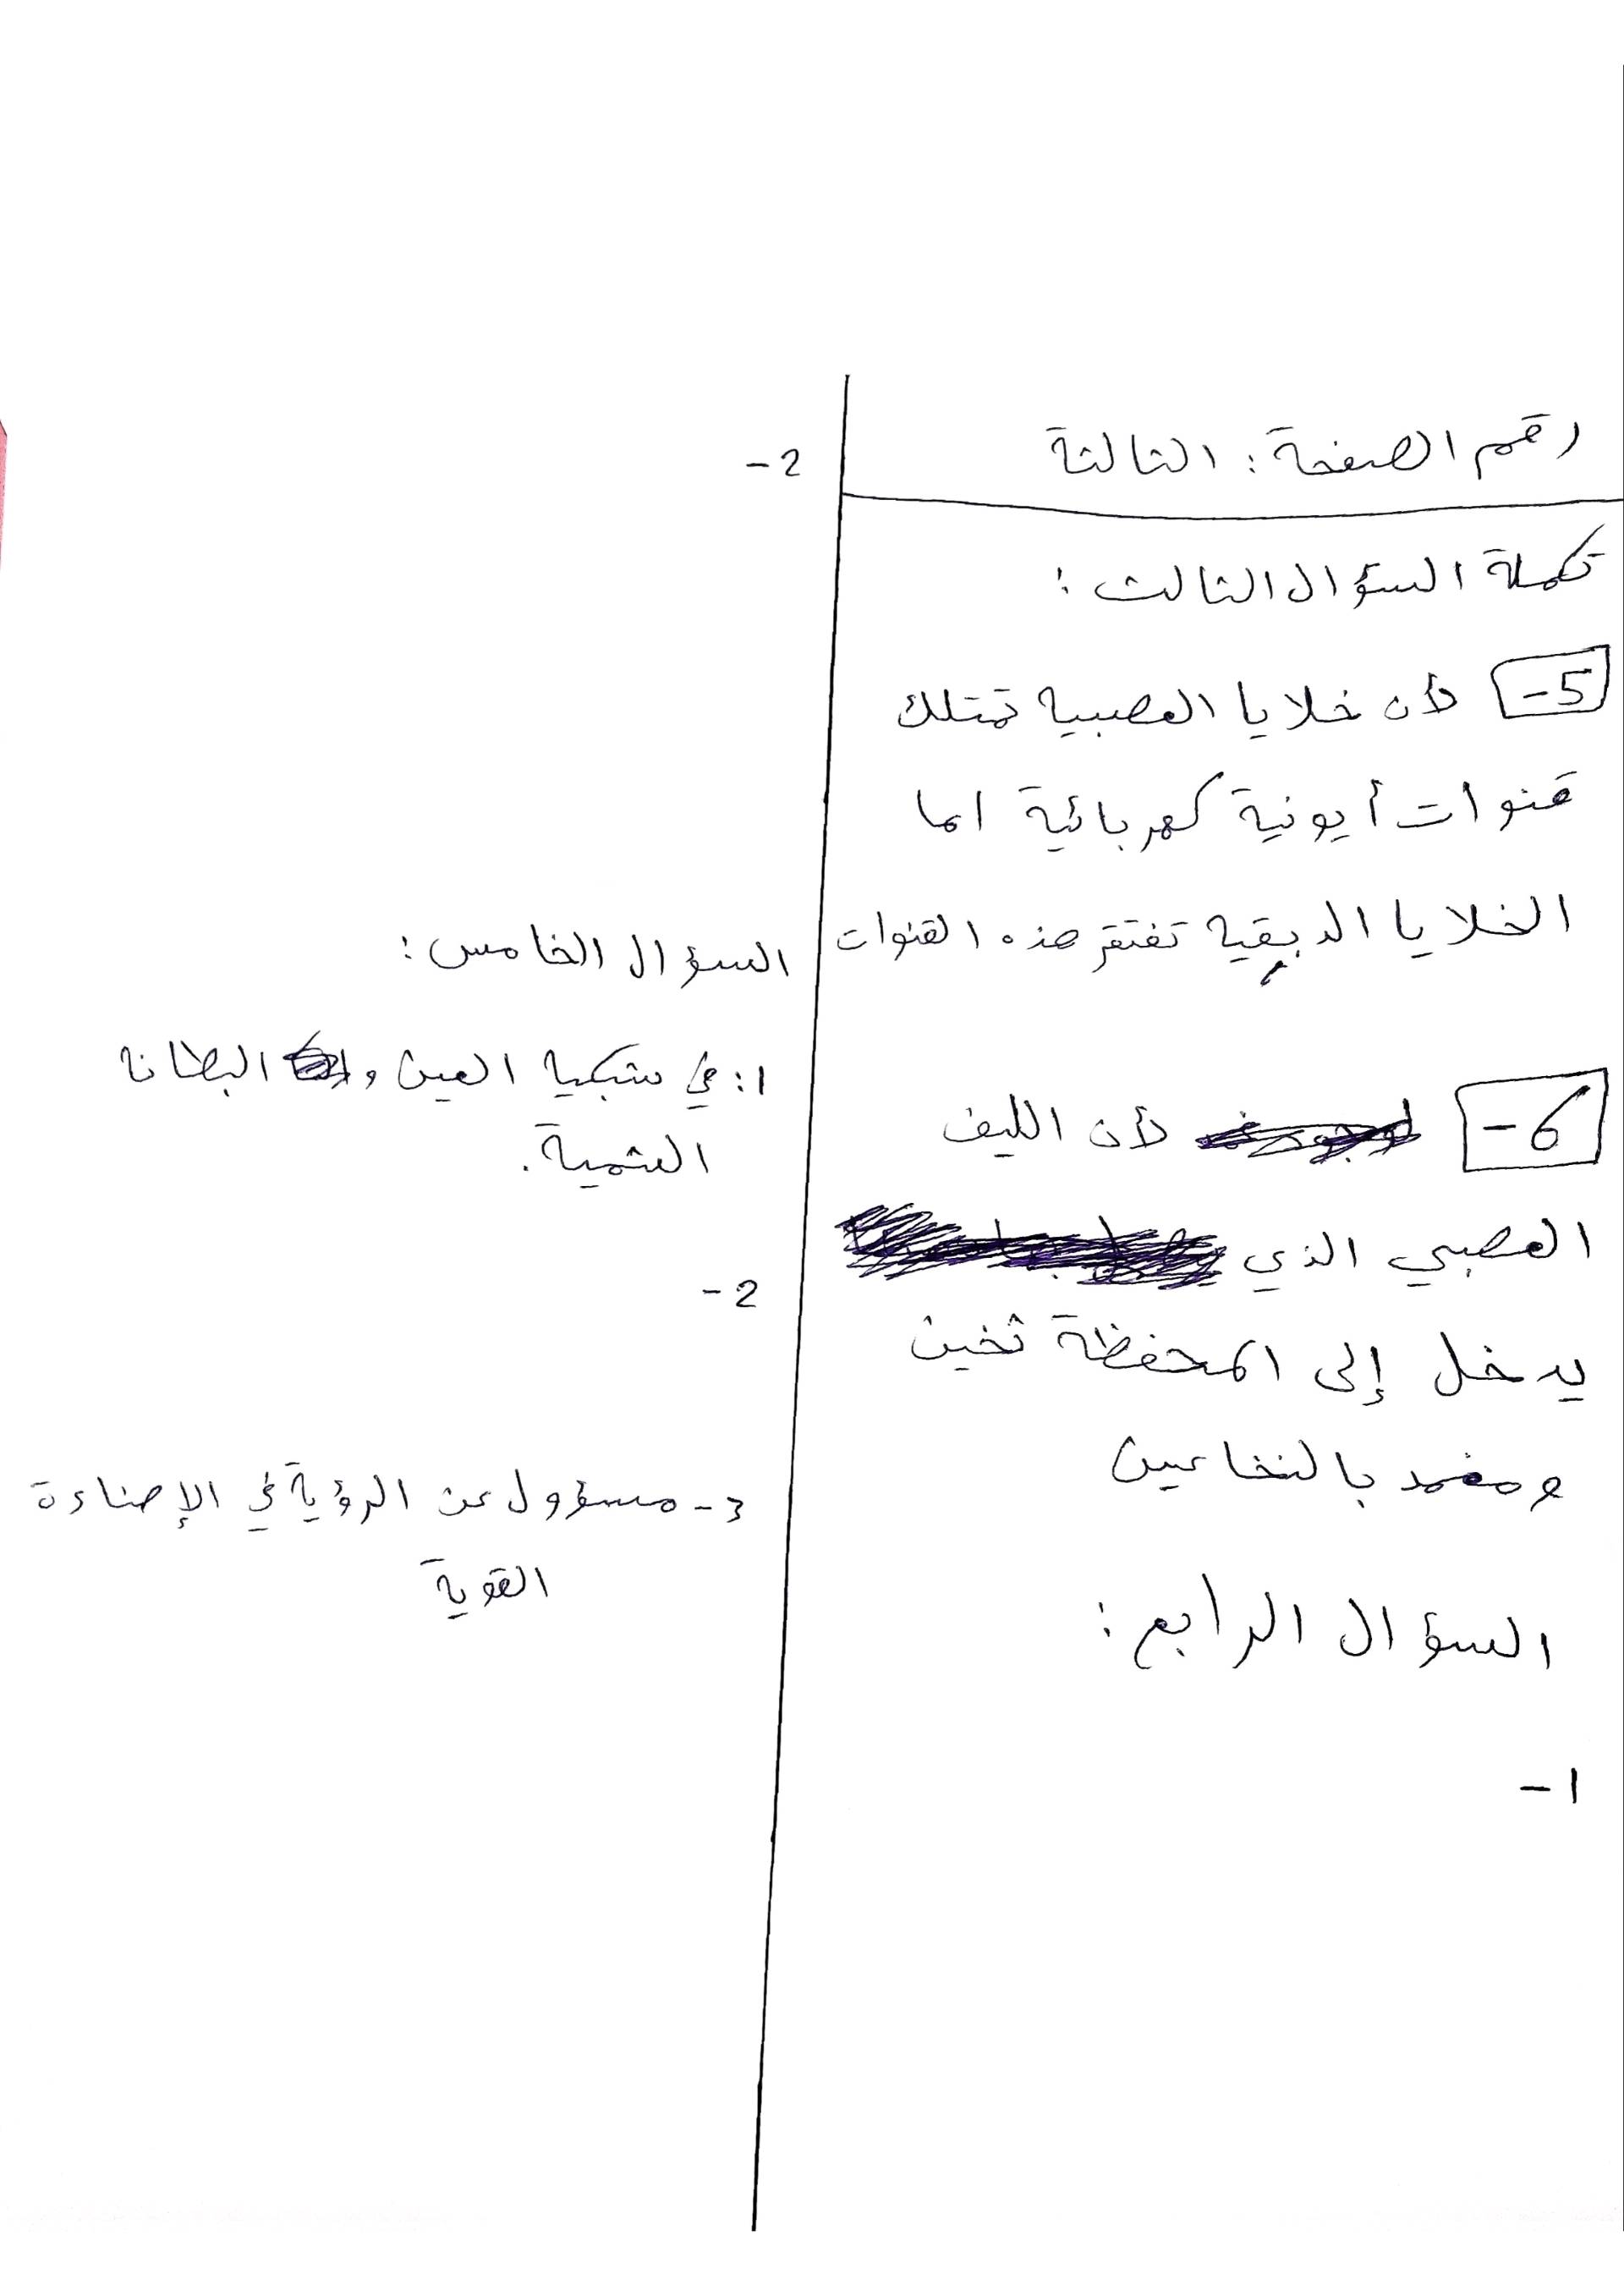 رقم الصفحة: الثالثة
تكملة السؤال الثالث:
5- لأن خلايا العصبية تمتلك
قنوات أيونية كهربائية اما
الخلايا الدبقية تفتقر هذه القنوات
6- لأن الليف
العصبي الذي
يدخل إلى المحفظة ثخين
ومغمد بالنخاعين
السؤال الرابع:
1-
2-
السؤال الخامس:
1: في شبكية العين و البطانة
الشمية.
2-
3- مسؤول عن الرؤية في الإضاءة
القوية